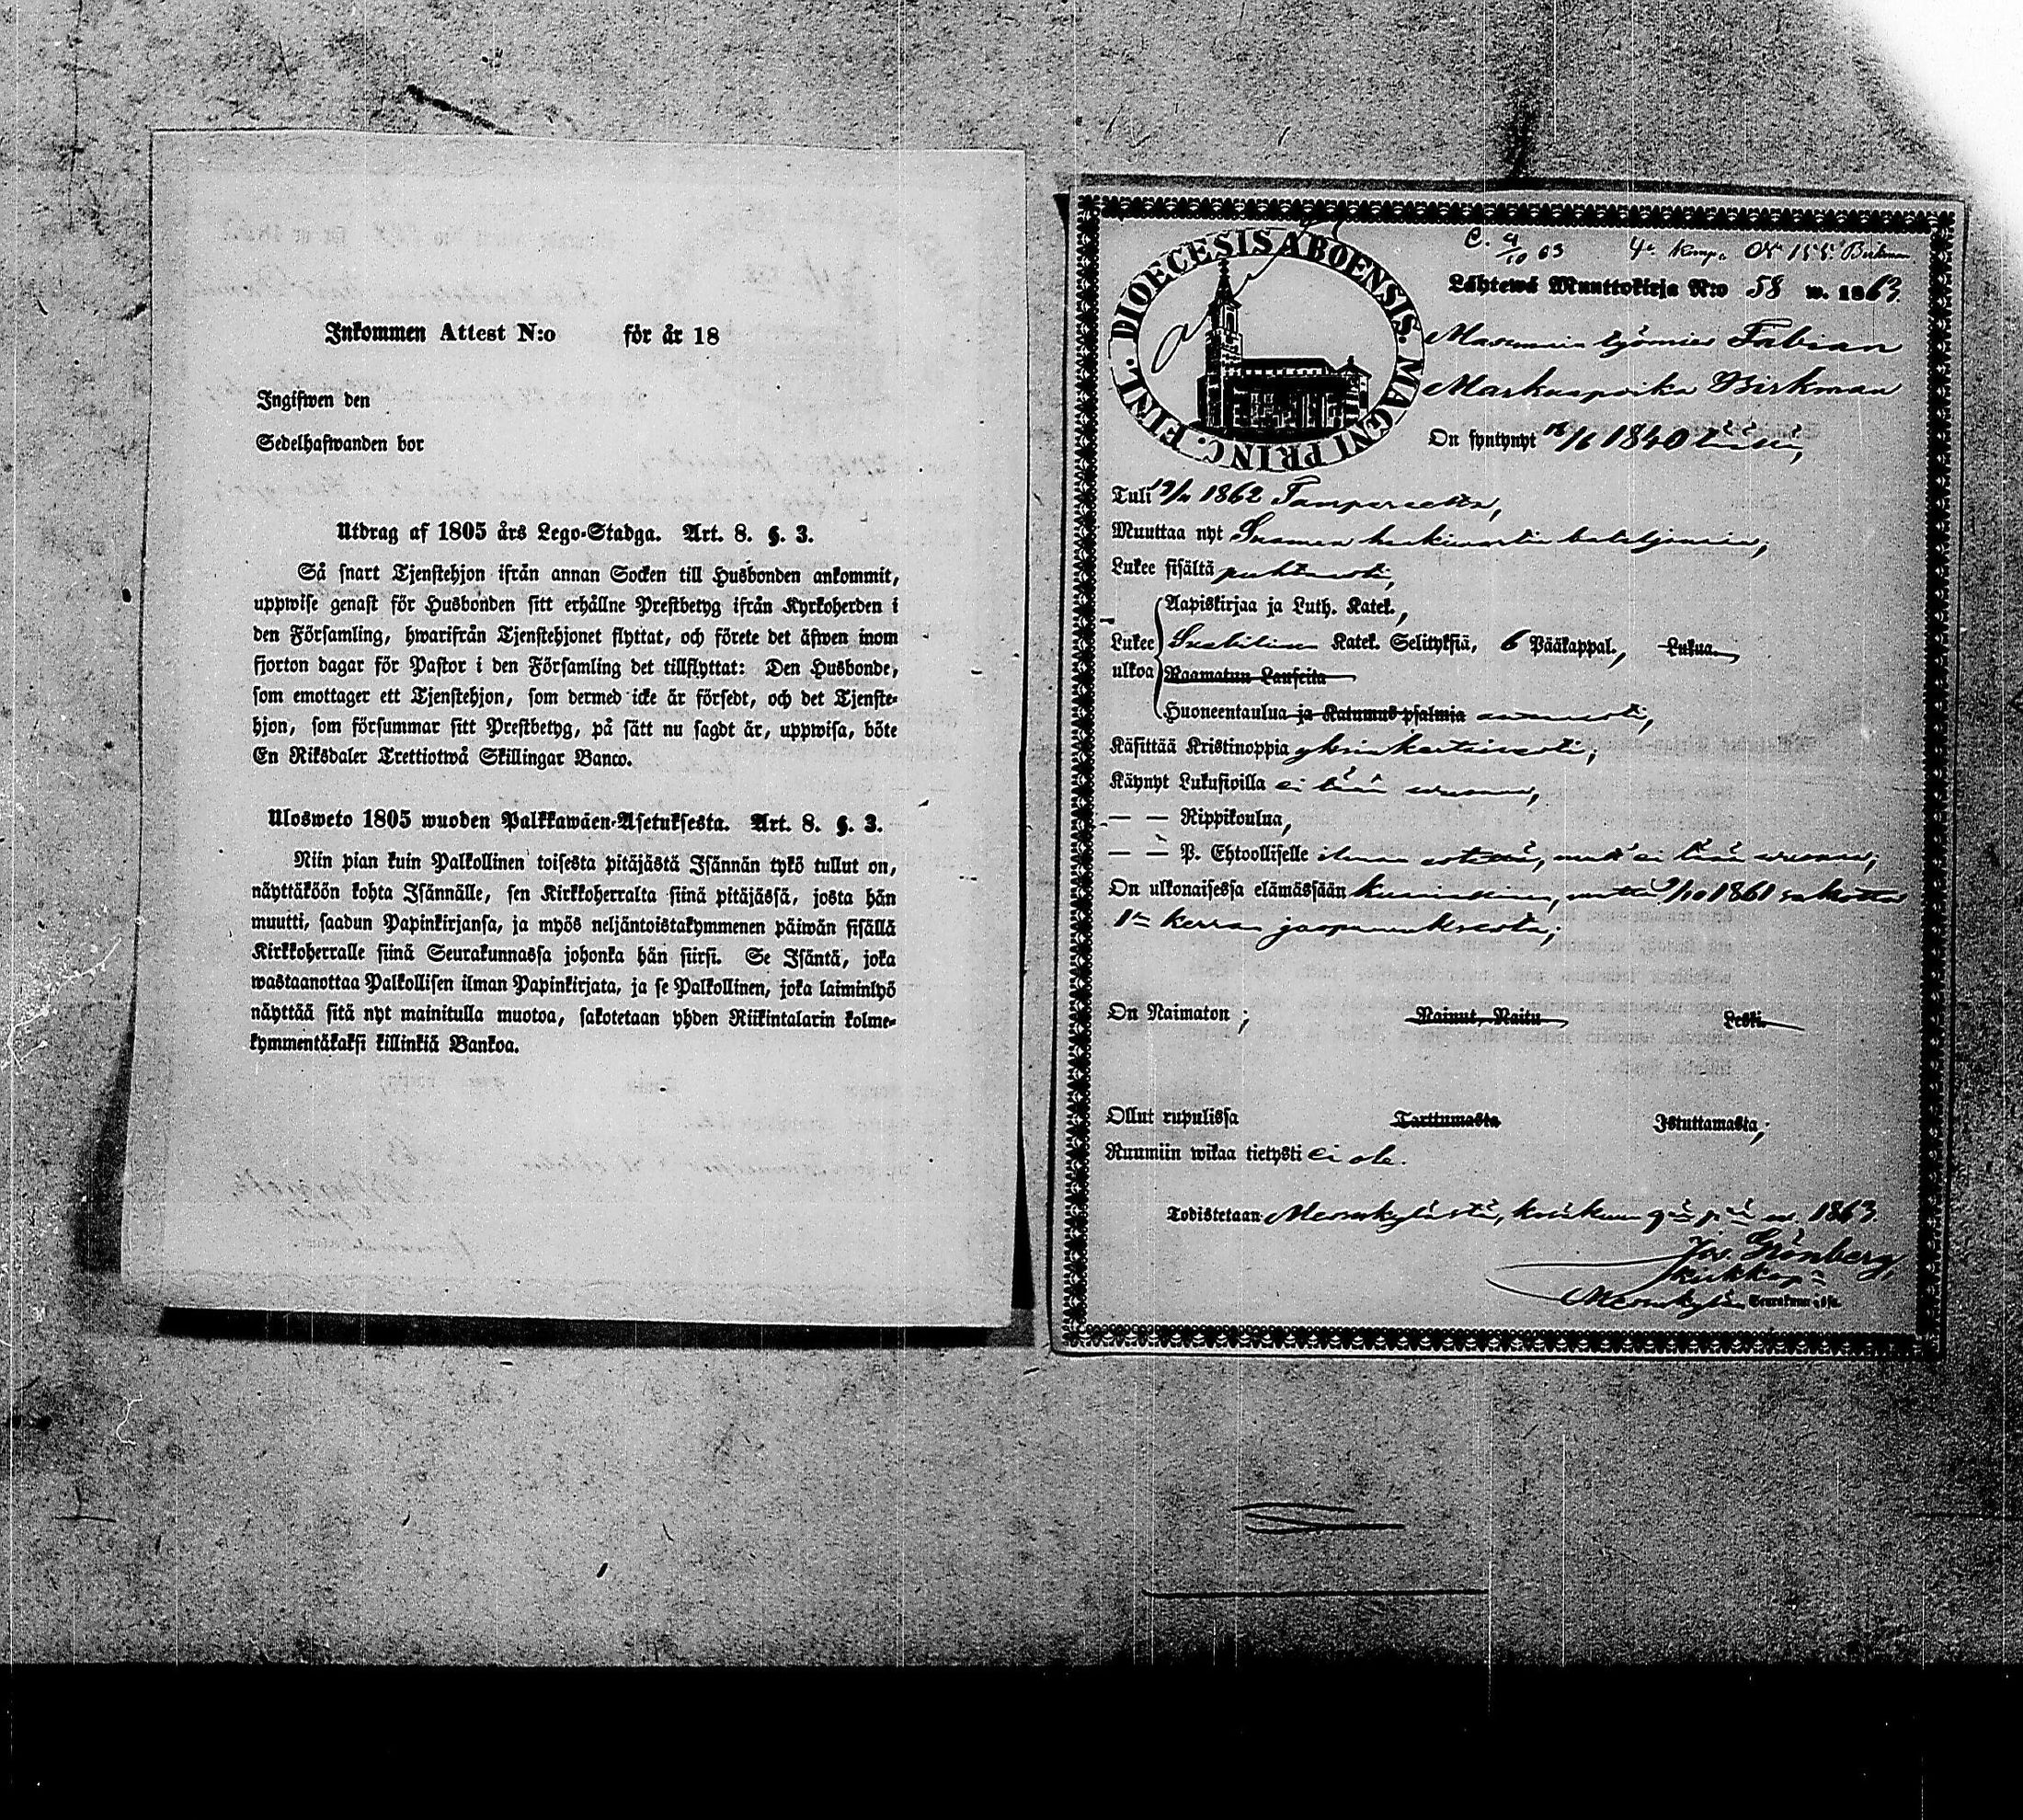 Inkommen Attest N:o för år 18
Ingifwen den
Sedelhafwanden bor
Utdrag af 1805 års Lego-Stadga. Art. 8. §. 3.
Så snart Tjenstehjon ifrån annan Socken till Husbonden ankommit,
uppwise genast för Husbonden sitt erhållne Prestbetyg ifrån Kyrkoherden i
den Församling, hwarifrån Tjenstehjonet flyttat, och förete det äfwen inom
fjorton dagar för Pastor i den Församling det tillflyttat: Den Husbonde,
som emottager ett Tjenstehjon, som dermed icke är försedt, och det Tjenste-
hjon, som försummar sitt Prestbetyg, på sätt nu sagdt är, uppwisa, böte
En Riksdaler Trettiotwå Skillingar Banco.
Ulosweto 1805 wuoden Palkkawäen-Asetuksesta. Art. 8. §. 3.
Niin pian kuin Palkollinen toisesta pitäjästä Isännän tykö tullut on,
näyttäköön kohta Isännälle, sen Kirkkoherralta siinä pitäjässä, josta hän
muutti, saadun Papinkirjansa, ja myös neljäntoistakymmenen päiwän sisällä
Kirkkoherralle siinä Seurakunnassa johonka hän siirsi. Se Isäntä, joka
wastaanottaa Palkollisen ilman Papinkirjata, ja se Palkollinen, joka laiminlyö
näyttää sitä nyt mainitulla muotoa, sakotetaan yhden Riikintalarin kolme-
kymmentäkaksi killinkiä Bankoa.
FINL. DIOECESIS ABOENSIS. MAGNI PRINC.
C. 9/10 63 4e Komp. No 155. Birkman
Lähtewä Muuttokirja N:o 58 w. 1863.
työmies Fabian
Markuspoika Birkman
On syntynyt 18/6 1840 täällä,
Tuli 1862 Tampereelta,
Muuttaa nyt Suomen henkiwartia bataljonaan,
Lukee sisältä puhtaasti,
Aapiskirjaa ja Luth. Katek.,
Lukee Katek. Selityksiä, 6 Pääkappal., Lukua.
ulkoa Raamatun Lauseita
Huoneentaulua ja Katumus psalmia
Käsittää Kristinoppia yksinkertaisesti;
Käynyt Lukusioilla ei tänä wuonna,
— — Rippikoulua,
— — P. Ehtoolliselle ilman estettä, mutta ei tänä wuonna;
On ulkonaisessa elämässään 9/10 1861 sakotettu
1n kerran juopumuksesta;
On Naimaton; Nainut, Naitu Leski.
Ollut rupulissa Tarttumasta Istuttamasta;
Ruumiin wikaa tietysti ei ole.
Todistetaan Messukylästä, 9nä p:nä 1863.
Jos. Grönberg,
Kirkkoh:
Messukylän Seurakunnassa.